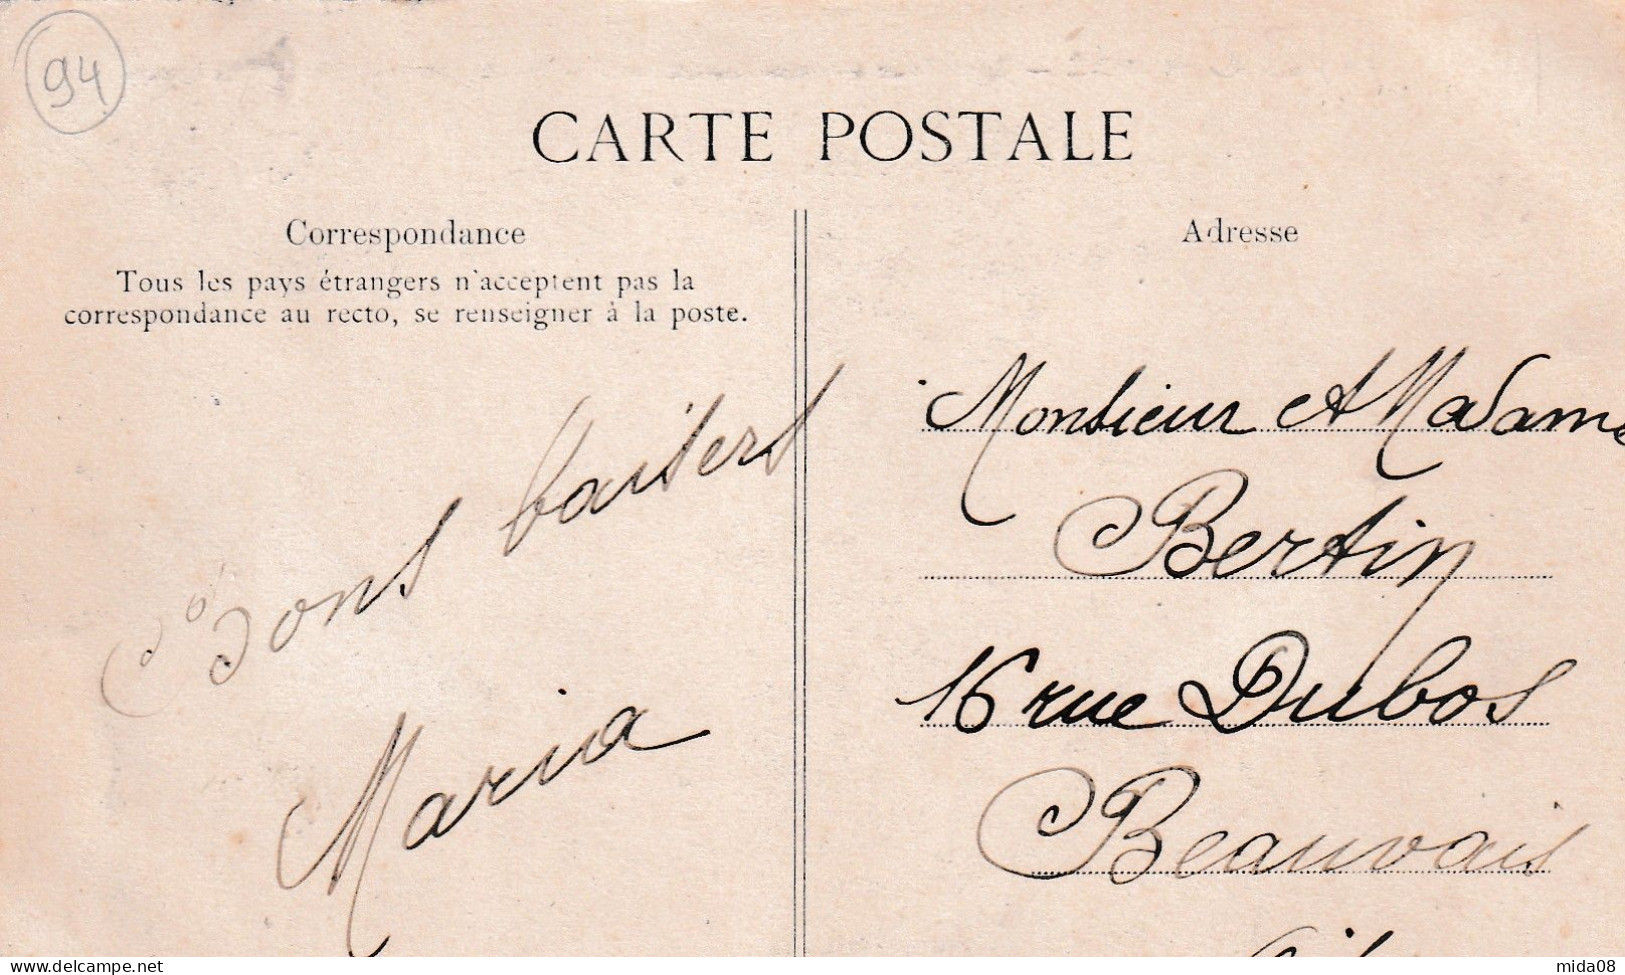 94
CARTE POSTALE
Correspondance
Tous les pays étrangers n'acceptent pas la
correspondance au recto, se renseigner à la poste.
Bons baisers
Maria
Adresse
Monsieur et Madame
Bertin
16 rue Dubos
Beauvais
mida08